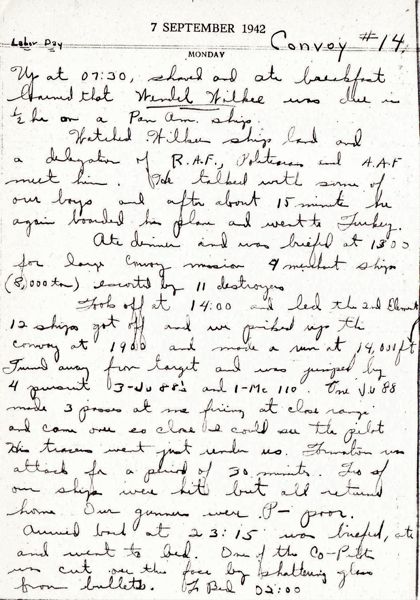 7 SEPTEMBER 1942
Labor Day
Convoy #14,
MONDAY
Up at 07:30, shaved and ate breakfast
learned that Wendel Wilkee was due in
½ hr on a Pan Am. ship.
Watched Wilkee ship land and
a delegation of R.A.F., Politicians and A.A.F
meet him. He talked with some of
our boys and after about 15 minute he
again boarded his plane and went to Turkey.
Ate dinner and was briefed at 1300
for large convoy mission 4 merchant ships
(8,000 ton) escorted by 11 destroyers
Took off at 14:00 and led the 2nd Element
12 ships got off and we picked up the
convoy at 1900 and made a run at 14,000 ft
Turned away from target and was jumped by
4 pursuit 3-Ju 88's and 1-Me 110 One Ju 88
made 3 passes at me firing at close range
and came over so close I could see the pilot
His tracers went just under us. Formation was
attack for a period of 30 minutes. Two of
our ships were hit but all returned
home. Our gunners were P- poor.
Arrived back at 23:15 was briefed, ate
and went to bed. One of the Co-Pilts
was cut on the face by shattering glass
from bullets. To Bed 02:00